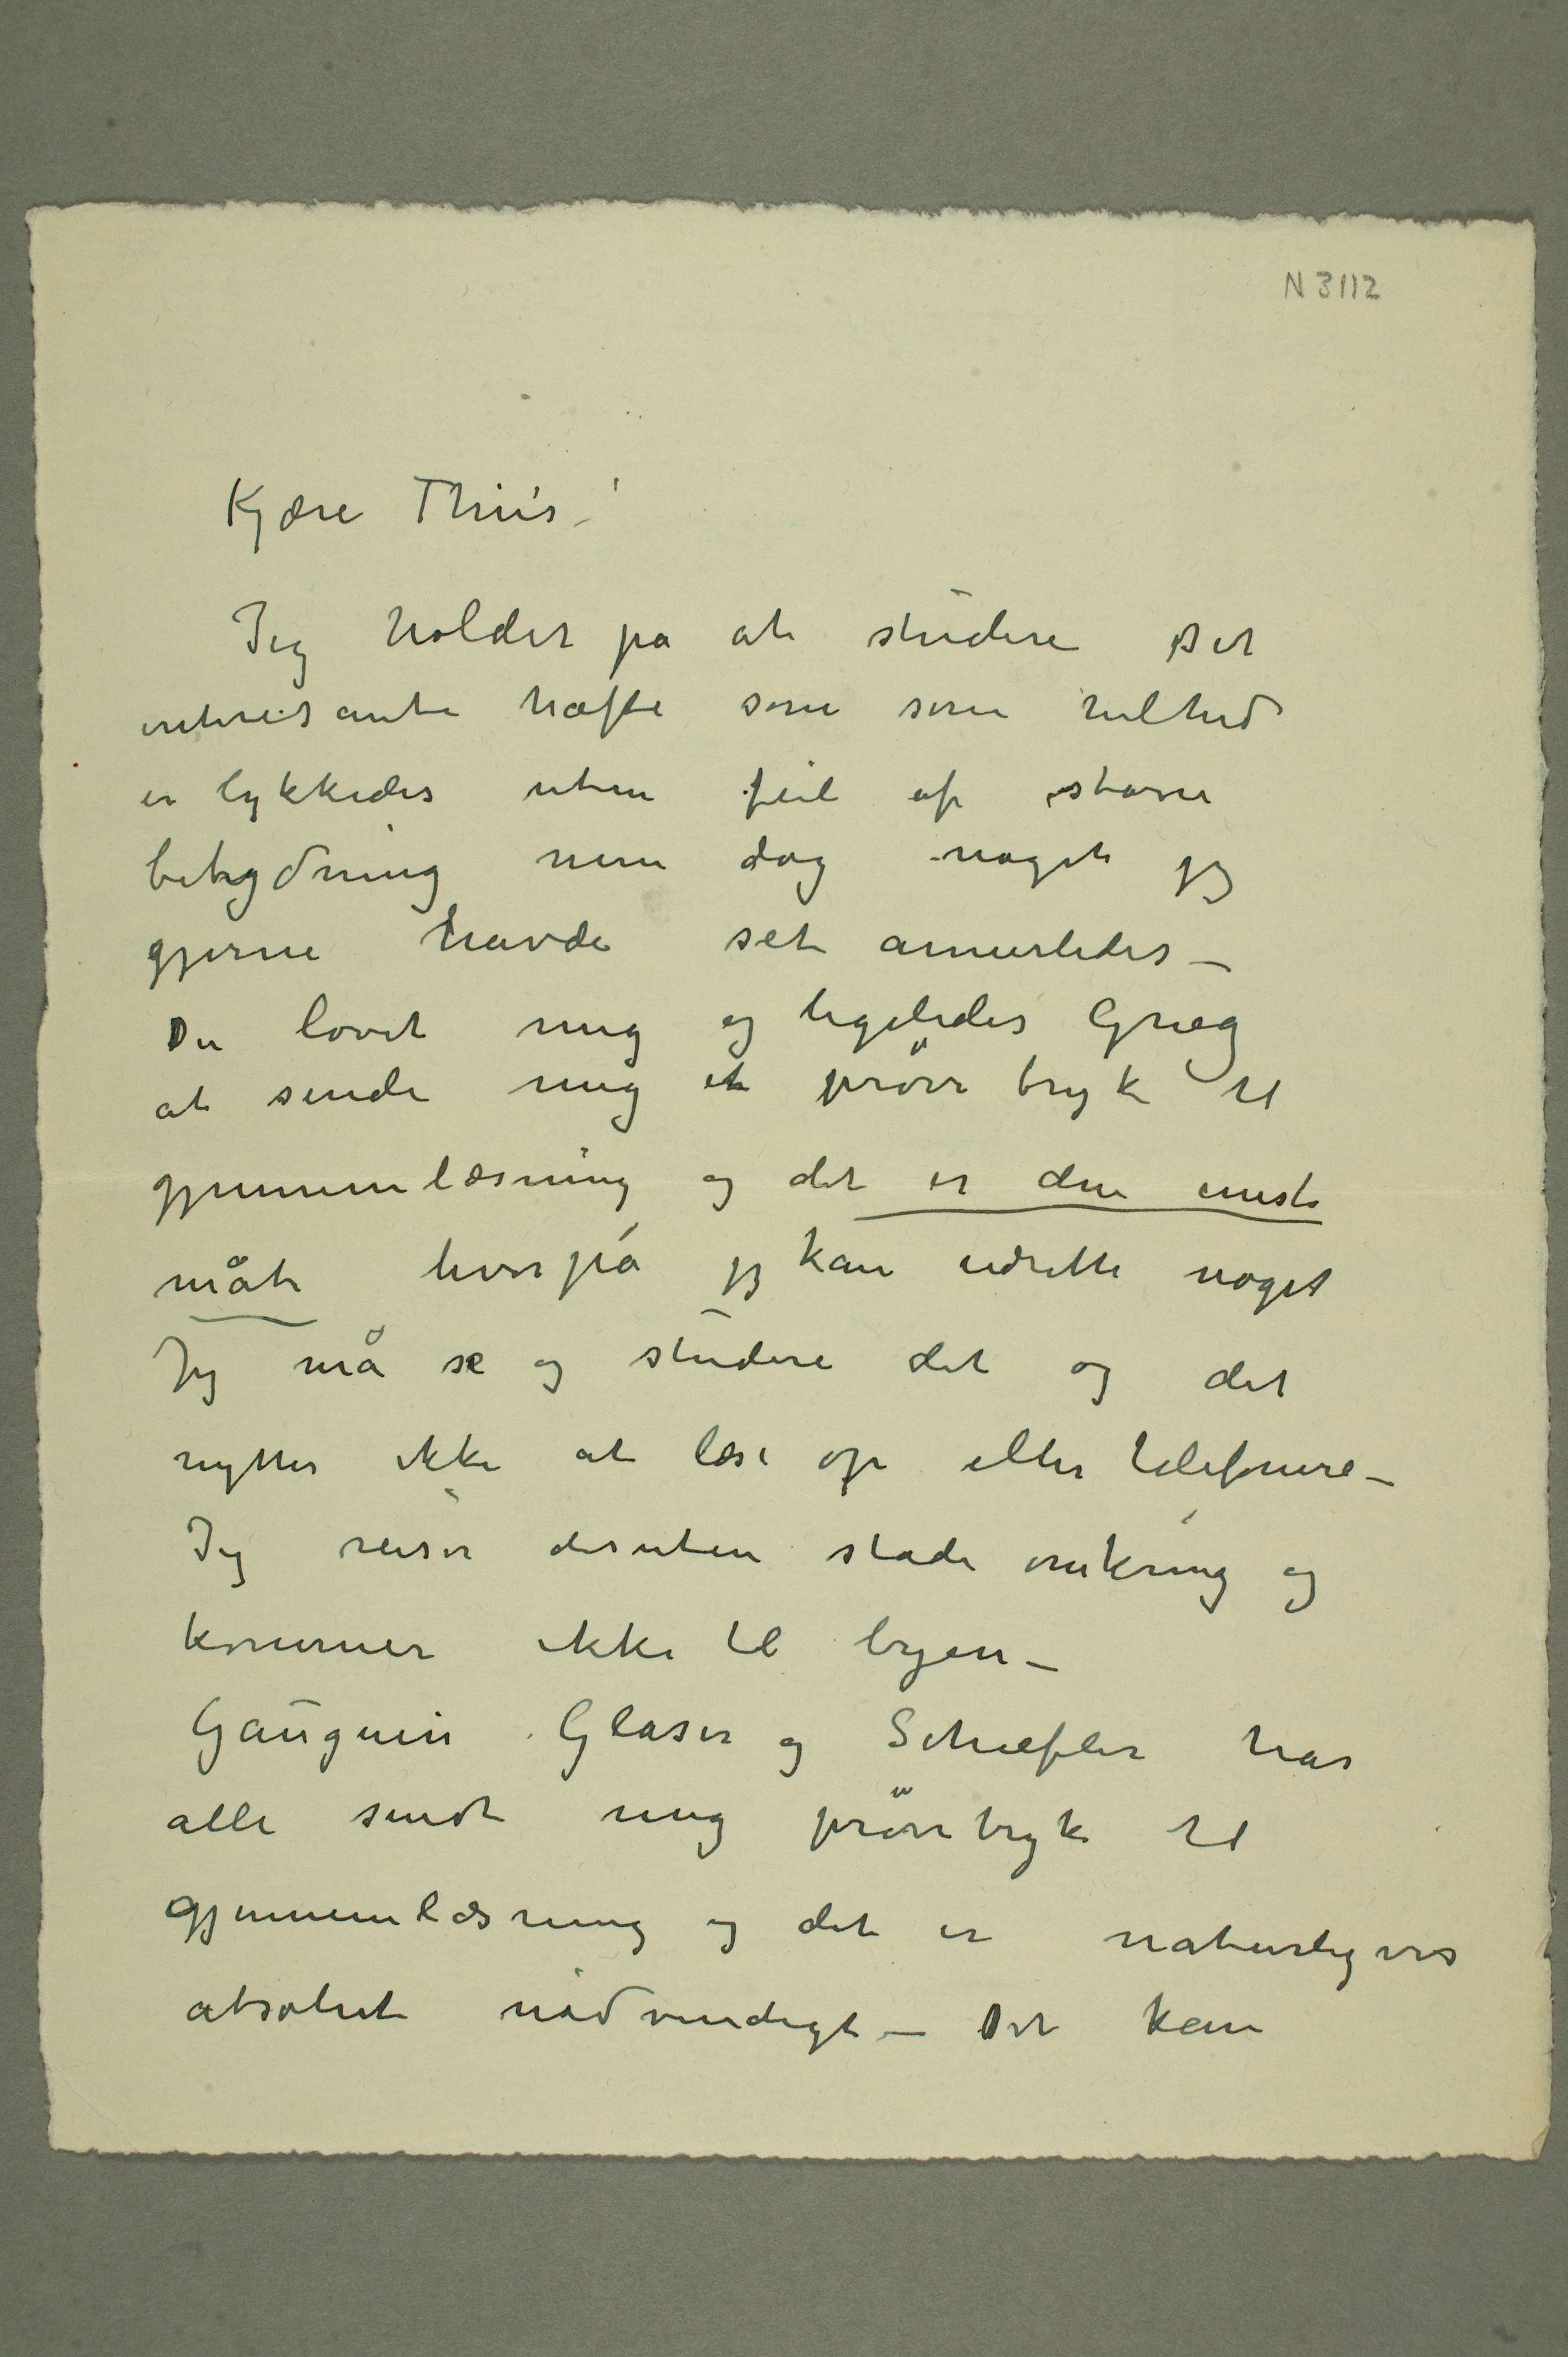 N 3112
Kjære Thiis!
Jeg holder på at studere det
interesante hæfte som som helhed
er lykkedes uten feil af større
betydning men dog noget jeg
gjerne havde set annerledes –
Du lovet mig og ligeledes Grieg
at sende mig et prøve tryk til
gjennemlæsning og det er den eneste
måte hvorpå jeg kan udrette noget
Jeg må se og studere det og det
nytter ikke at læse op eller telefonere –
Jeg reiser desuten stadi omkring og
kommer ikke til byen –
Gauguin Glaser og Schiefler har
alle sendt mig prøvetryk til
gjennemlæsning og det er naturligvis
absolut nødvendigt – Det kan